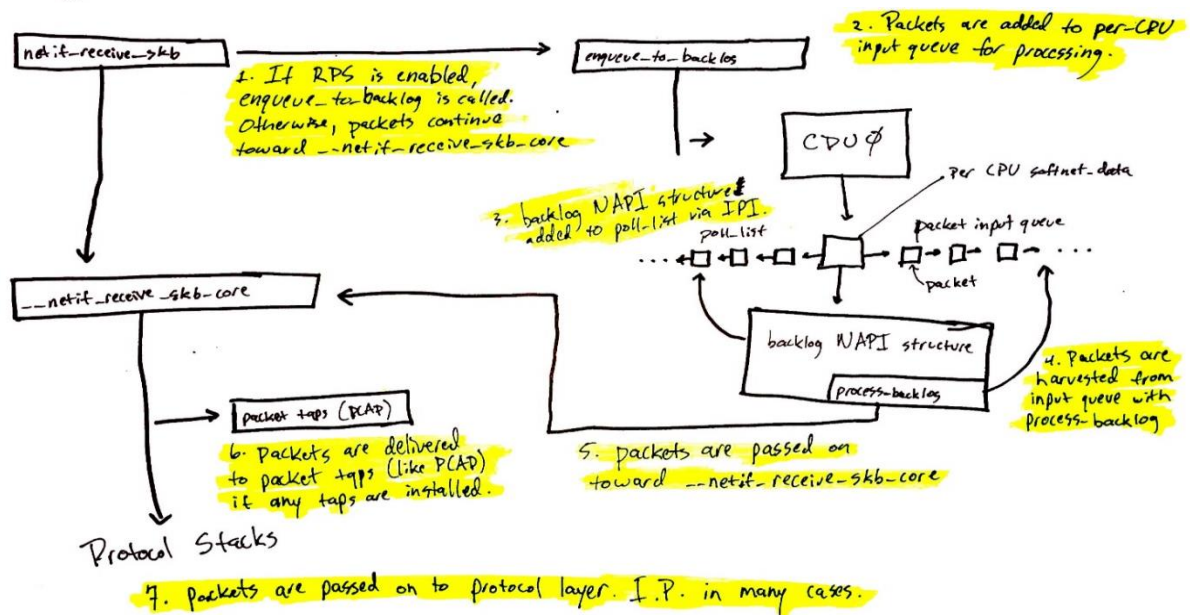 netif_receive_skb
1. If RPS is enabled,
enqueue_to_backlog is called.
Otherwise, packets continue
toward __netif_receive_skb_core
enqueue_to_backlog
2. Packets are added to per-CPU
input queue for processing.
CPU 0
per CPU softnet_data
3. backlog NAPI structure
added to poll_list via IPI.
poll_list
packet input queue
...
...
packet
__netif_receive_skb_core
backlog NAPI structure
process_backlog
4. Packets are
harvested from
input queue with
process_backlog
packet taps (PCAP)
6. Packets are delivered
to packet taps (like PCAP)
if any taps are installed.
5. packets are passed on
toward __netif_receive_skb_core
Protocol Stacks
7. packets are passed on to protocol layer. I.P. in many cases.